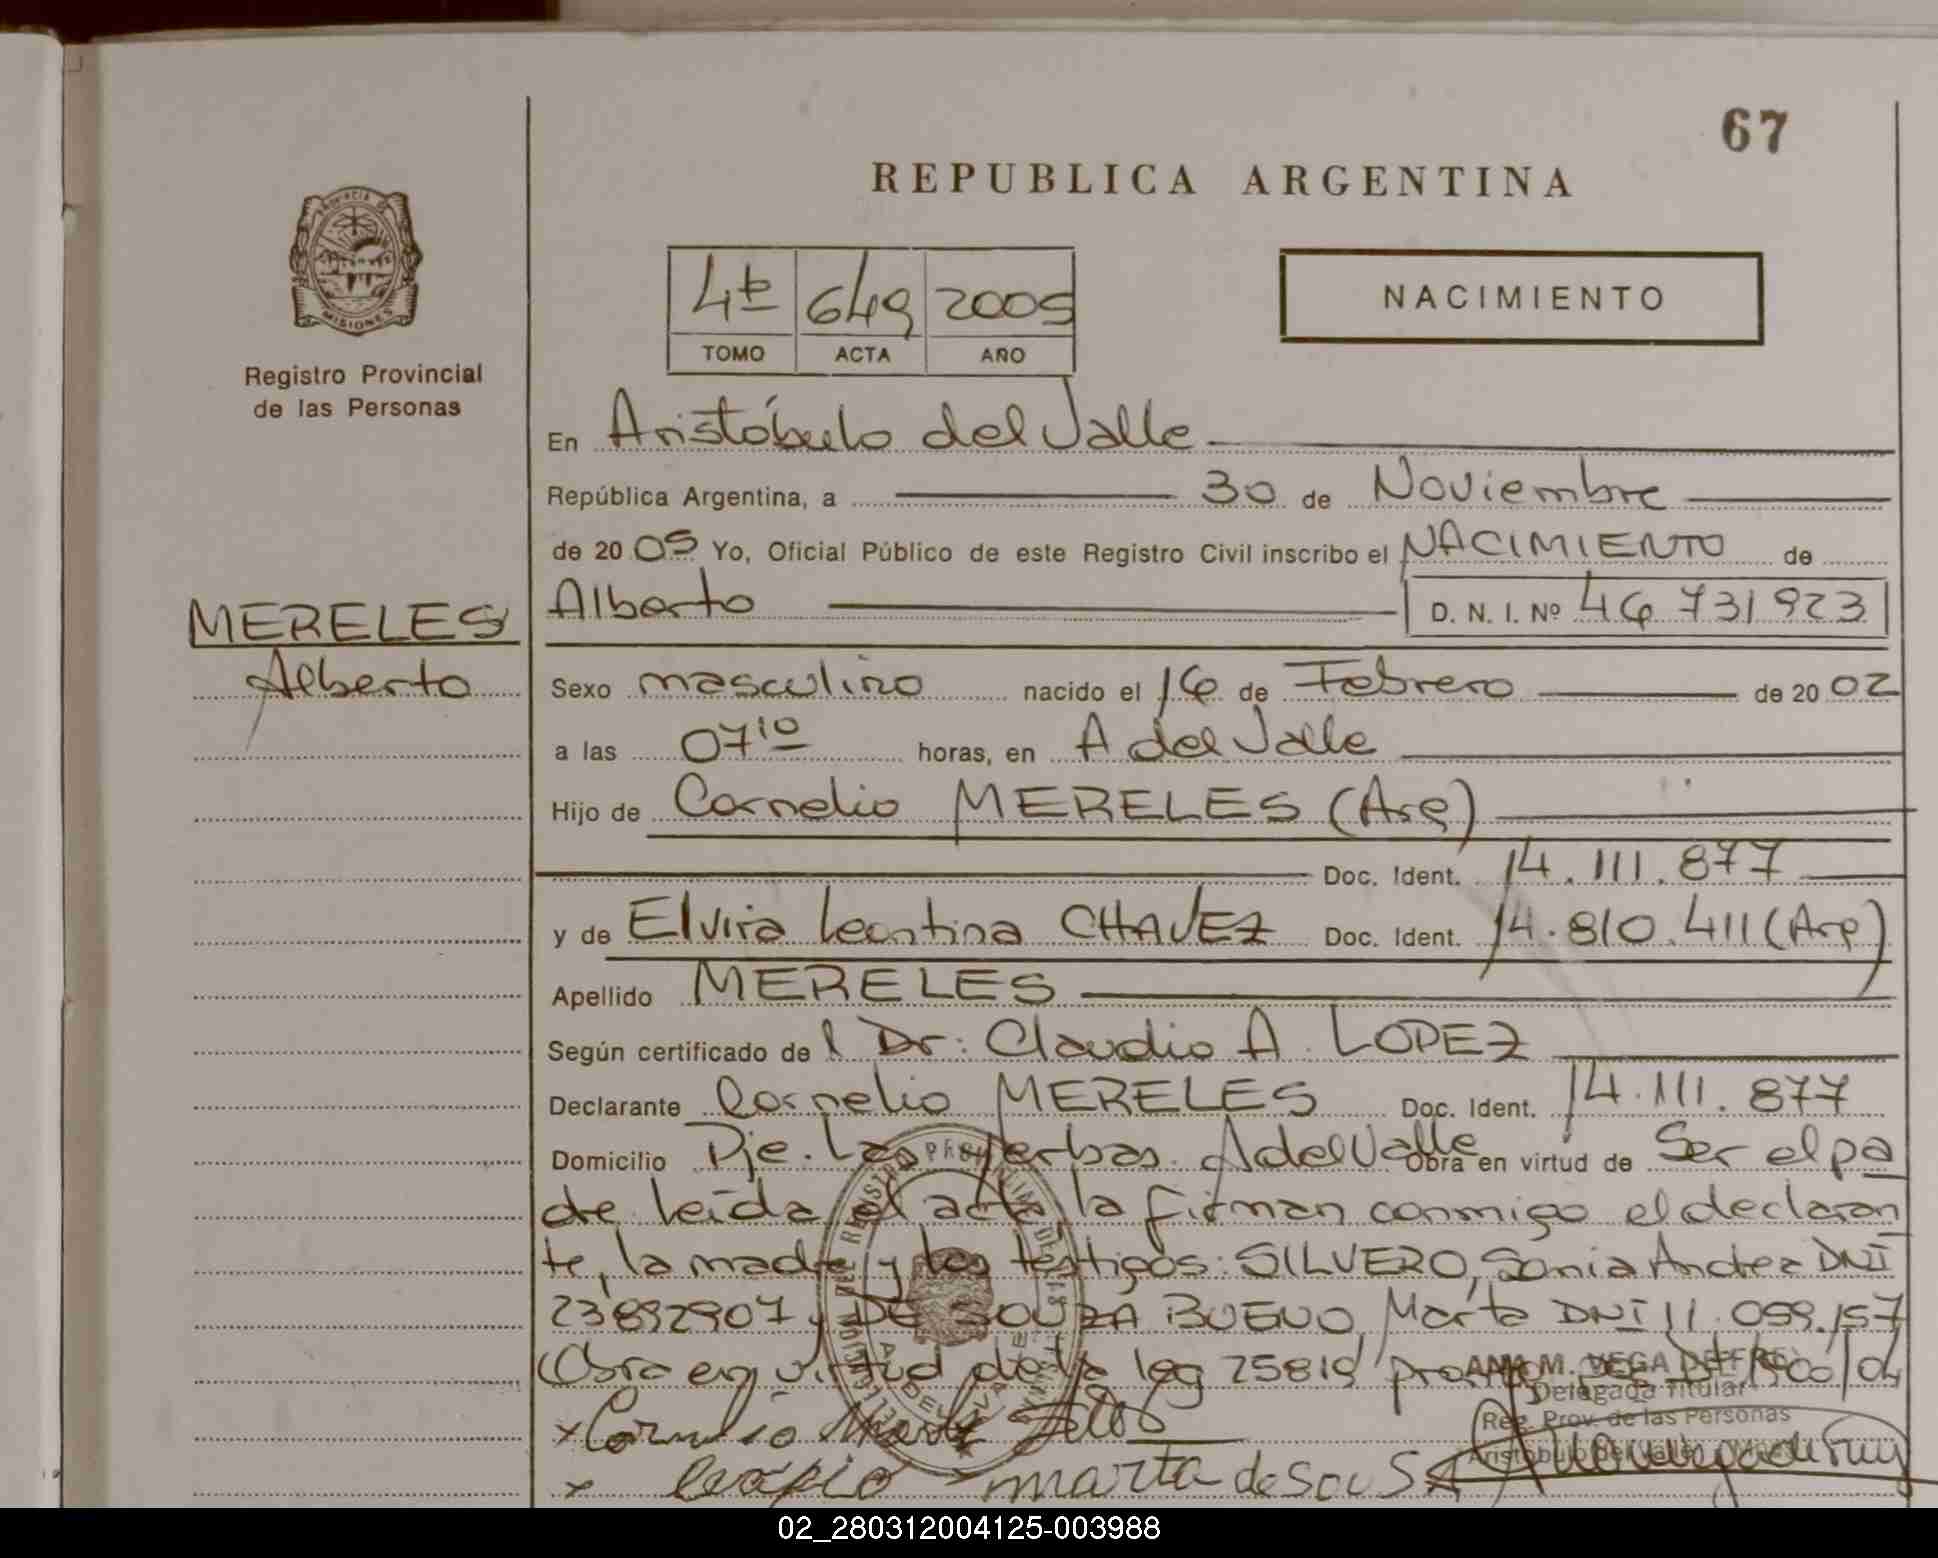 67
REPUBLICA ARGENTINA
PROVINCIA DE
MISIONES
Registro Provincial
de las Personas
4to 649 2005
TOMO ACTA AÑO
NACIMIENTO
En Aristóbulo del Valle
República Argentina, a 30 de Noviembre
de 2005 Yo, Oficial Público de este Registro Civil inscribo el NACIMIENTO de
Alberto D. N. I. Nº 46 731923
MERELES
Alberto
Sexo masculino nacido el 16 de Febrero de 2002
a las 07 10 horas, en A del Valle
Hijo de Cornelio MERELES (Arg)
Doc. Ident. 14.111.877
y de Elvira Leontina CHAVEZ Doc. Ident. 14.810.411 (Arg)
Apellido MERELES
Según certificado del Dr. Claudio A. LOPEZ
Declarante Cornelio MERELES Doc. Ident. 14.111.877
Domicilio Pje. Las Yerbas. A del Valle Obra en virtud de Ser el pa
dre leída el acta, la firman conmigo el declaran
te, la madre y los testigos: SILVERO, Sonia Andrea DNI
23892907 y DE SOUZA BUENO, Marta DNI 11.059.157
(Obra en virtud de la ley 25819
ANA M. VEGA DE FREY
Delegada Titular
Reg. Prov. de las Personas
Aristóbulo del Valle
x Cornelio
x marta de SouSA
02_280312004125-003988